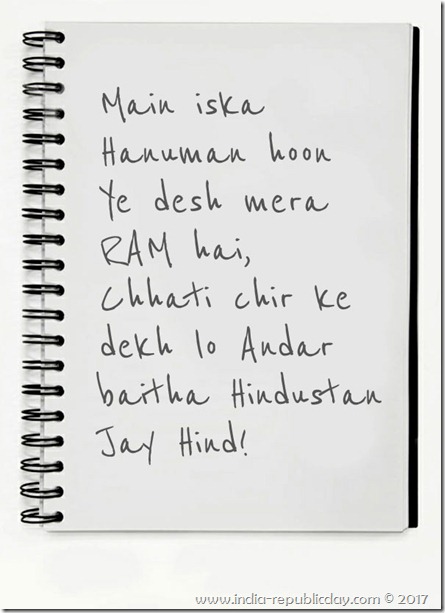 Main iska
Hanuman hoon
Ye desh mera
RAM hai,
Chhati chir ke
dekh lo Andar
baitha Hindustan
Jay Hind!
www.india-republicday.com © 2017